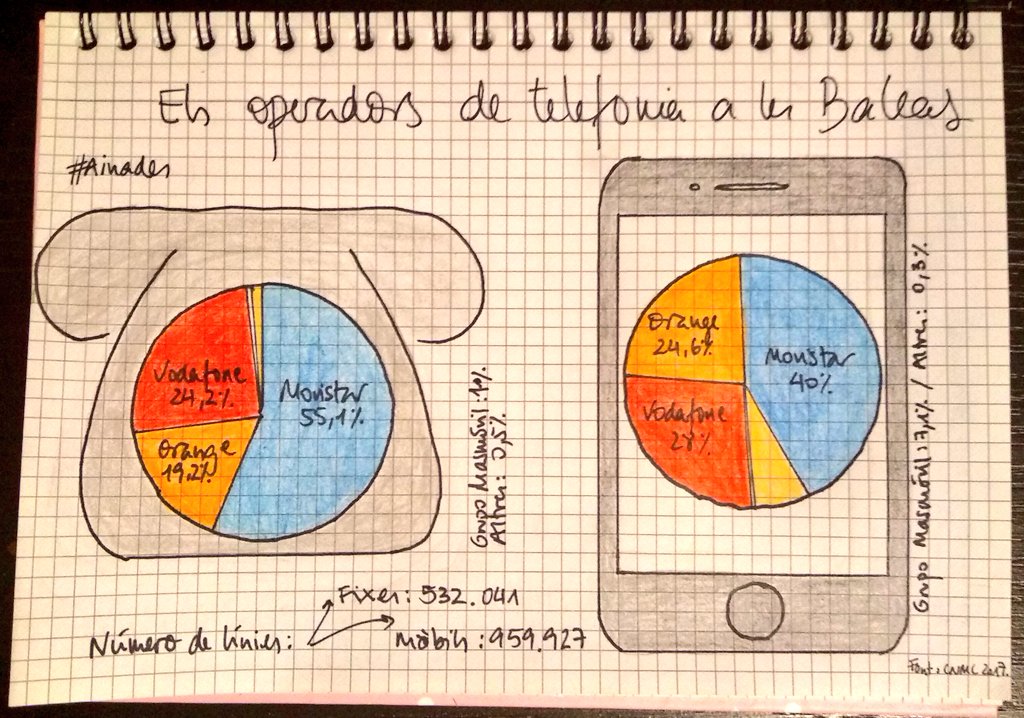 Els operadors de telefonia a les Balears
#Ainades
Vodafone
24,2%
Orange
19,2%
Movistar
55,1%
Grupo Masmóvil: 1%
Altres: 0,5%
Orange
24,6%
Movistar
40%
Vodafone
28%
Grupo Masmóvil: 7,1% / Altres: 0,3%
Número de línies:
Fixes: 532.041
Mòbils: 959.927
Font: CNMC 2017.